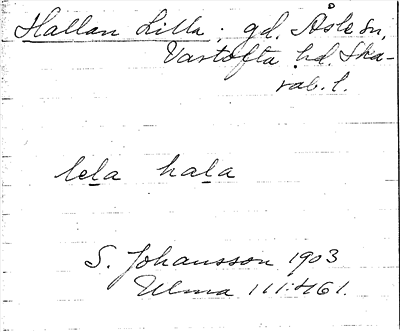 Hallan Lilla; gd. Åsle sn,
Vartofta hd. Ska-
rab. l.
lela hala
S. Johansson 1903
Ulma 111:461.